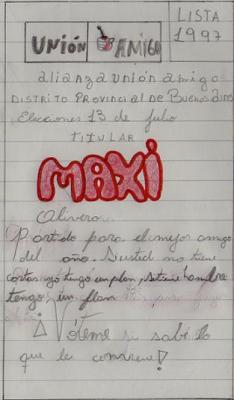 LISTA
1997
UNIÓN AMIGO
alianza unión amigo
DISTRITO PROVINCIAL DE BUENOS AIRES
Elecciones 13 de julio
TITULAR
MAXI
Olivero
Partido para el mejor amigo
del año. Si usted no tiene
cortas yo tengo un plan, si tiene hambre
tengo un flan
¡Vóteme si sabe lo
que le conviene!